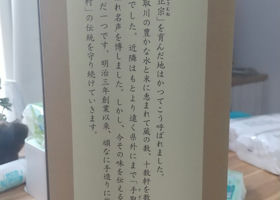 正宗」を育んだ地はかつてこう呼ばれました。
取川の豊かな水と米に恵まれて蔵の数、十数軒を数
でした。近隣はもとより遠く県外にまで「手取
れ名声を博しました。しかし、今その味を伝える
だ一つです。明治三年創業以来、頑なに手造りに
村」の伝統を守り続けていきます。